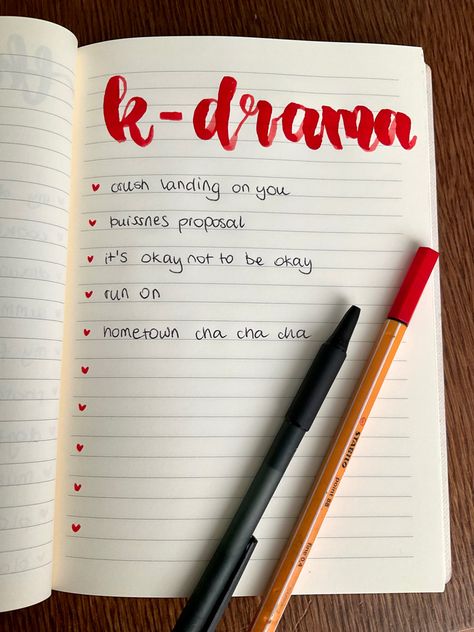 k-drama
crush landing on you
buissnes proposal
it's okay not to be okay
run on
hometown cha cha cha
STABILO
point 88
fine 0.4